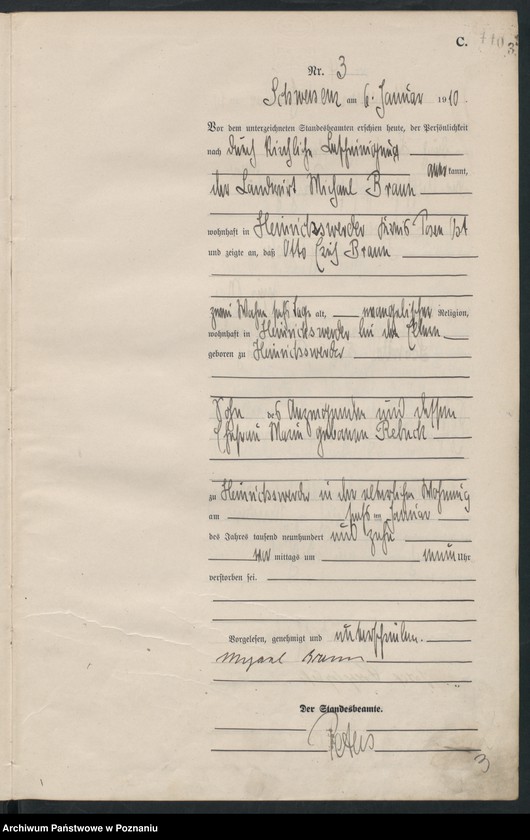 C.
Nr. 3
Schwersenz am 6. Januar 1910.
Vor dem unterzeichneten Standesbeamten erschien heute, der Persönlichkeit
nach durch kirchliche Bescheinigung
anerkannt,
der Landwirt Michael Braun
wohnhaft in Heinrichswerder Kreis Posen Ost
und zeigte an, daß Otto Erich Braun
zwei Wochen sechs Tage alt, evangelischer Religion,
wohnhaft in Heinrichswerder bei den Eltern
geboren zu Heinrichswerder
Sohn des Anzeigenden und dessen
Ehefrau Marie geborenen
zu Heinrichswerder in der elterlichen Wohnung
am Januar
des Jahres tausend neunhundert und zehn
vormittags um neun Uhr
verstorben sei.
Vorgelesen, genehmigt und unterschrieben.
Braun
Der Standesbeamte.
3
Archiwum Państwowe w Poznaniu